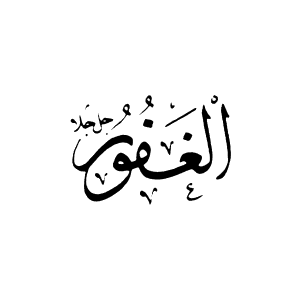 الْغَفُورُ جل جلا